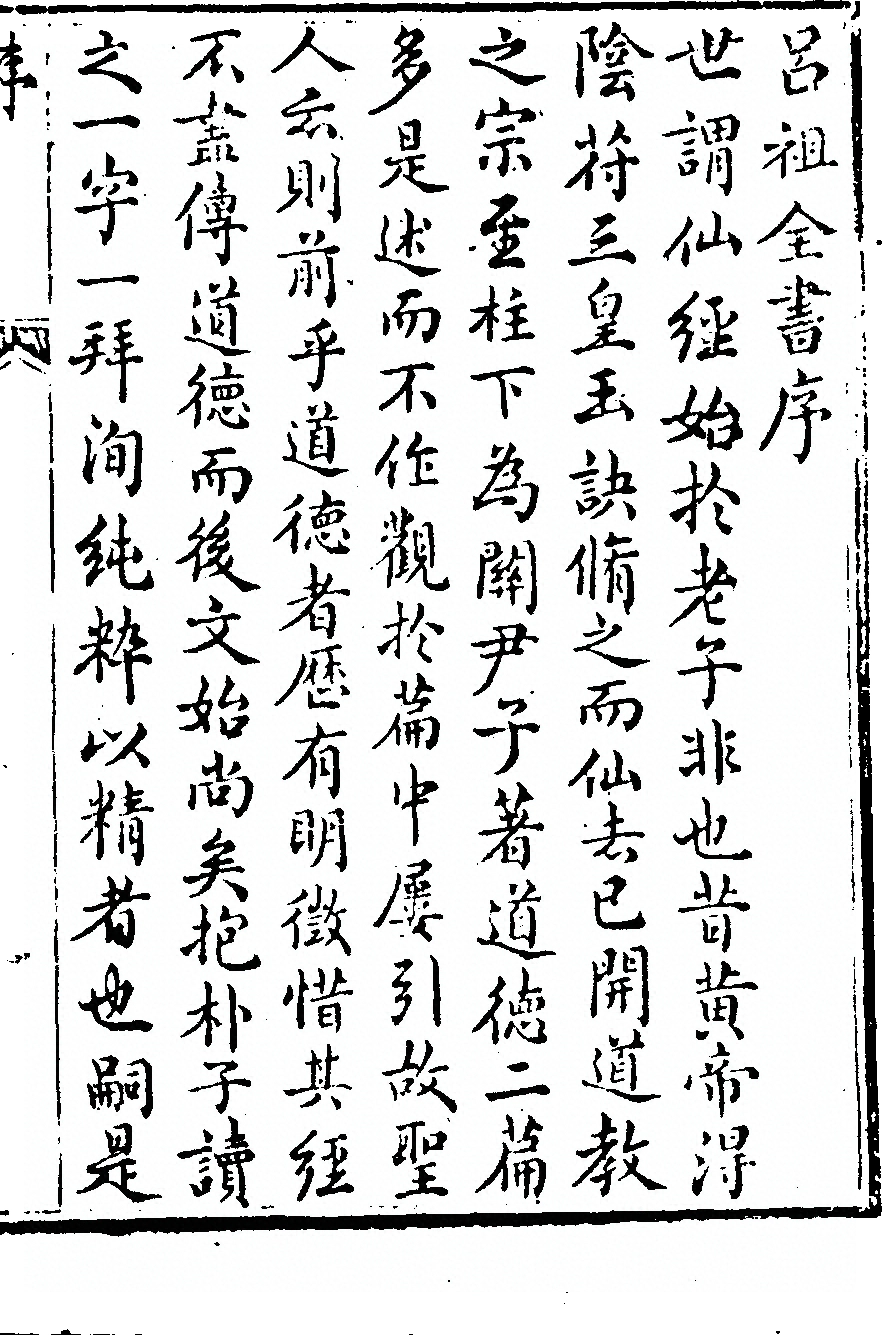 呂祖全書序
世謂仙經始於老子非也昔黃帝得
陰符三皇玉訣脩之而仙去已開道教
之宗至柱下為關尹子著道德二篇
多是述而不作觀於篇中屢引故聖
人云則前乎道德者歷有明徵惜其經
不盡傳道德而後文始尚矣抱朴子讀
之一字一拜洵純粹以精者也嗣是